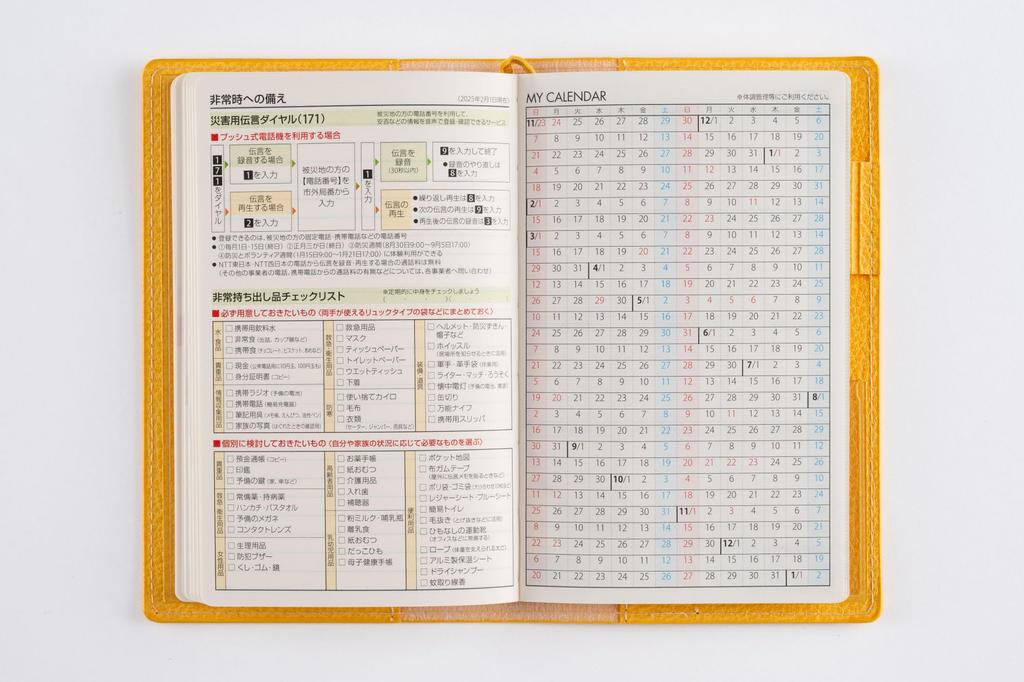 非常時への備え
(2025年2月1日現在)
災害用伝言ダイヤル(171)
被災地の方の電話番号を利用して、
安否などの情報を音声で登録・確認できるサービス
■プッシュ式電話機を利用する場合
171をダイヤル
伝言を
録音する場合
1を入力
伝言を
再生する場合
2を入力
被災地の方の
【電話番号】を
市外局番から
入力
1を入力
伝言を
録音
(30秒以内)
9を入力して終了
●録音のやり直しは
8を入力
伝言の
再生
●繰り返し再生は8を入力
●次の伝言の再生は9を入力
●再生後の伝言の録音は3を入力
●登録できるのは、被災地の方の固定電話・携帯電話などの電話番号
●①毎月1日・15日(終日) ②正月三が日(終日) ③防災週間(8月30日9:00~9月5日17:00)
④防災とボランティア週間(1月15日9:00~1月21日17:00)に体験利用ができる
●NTT東日本・NTT西日本の電話から伝言を録音・再生する場合の通話料は無料
(その他の事業者の電話、携帯電話からの通話料の有無などについては、各事業者へ問い合わせ)
非常持ち出し品チェックリスト
※定期的に中身をチェックしましょう
■必ず用意しておきたいもの〈両手が使えるリュックタイプの袋などにまとめておく〉
水・食品
□携帯用飲料水
□非常食(缶詰、カップ麺など)
□携帯食(チョコレート、ビスケット、あめなど)
貴重品
□現金(公衆電話用に10円玉、100円玉も)
□身分証明書(コピー)
情報収集用品
□携帯ラジオ(予備の電池)
□携帯電話(簡易充電器)
□筆記用具(メモ帳、えんぴつ、油性ペン)
□家族の写真(はぐれたときの確認用)
救急・衛生用品
□救急用品
□マスク
□ティッシュペーパー
□トイレットペーパー
□ウエットティッシュ
□下着
防寒
□使い捨てカイロ
□毛布
□衣類
(セーター、ジャンパー、雨具など)
装備・道具
□ヘルメット・防災ずきん・
帽子など
□ホイッスル
(居場所を知らせるときに活用)
□軍手・革手袋(作業用)
□ライター・マッチ・ろうそく
□懐中電灯(予備の電池、電球)
□缶切り
□万能ナイフ
□携帯用スリッパ
■個別に検討しておきたいもの〈自分や家族の状況に応じて必要なものを選ぶ〉
貴重品
□預金通帳(コピー)
□印鑑
□予備の鍵(家、車など)
救急・衛生用品
□常備薬・持病薬
□ハンカチ・バスタオル
□予備のメガネ
□コンタクトレンズ
女性用品
□生理用品
□防犯ブザー
□くし・ゴム・鏡
高齢者用品
□お薬手帳
□紙おむつ
□介護用品
□入れ歯
□補聴器
乳幼児用品
□粉ミルク・哺乳瓶
□離乳食
□紙おむつ
□だっこひも
□母子健康手帳
便利用品
□ポケット地図
□布ガムテープ
(屋外に伝言メモを貼るときなど)
□ポリ袋・ゴミ袋
□レジャーシート・ブルーシート
□簡易トイレ
□毛抜き(とげ抜きなどに活用)
□ひもなしの運動靴
(オフィスなどに常備する)
□ロープ(体重を支えられる太さ)
□アルミ製保温シート
□ドライシャンプー
□蚊取り線香
MY CALENDAR
※体調管理等にご利用ください。
日 月 火 水 木 金 土 日 月 火 水 木 金 土
11/23 24 25 26 27 28 29 30 12/1 2 3 4 5 6
7 8 9 10 11 12 13 14 15 16 17 18 19 20
21 22 23 24 25 26 27 28 29 30 31 1/1 2 3
4 5 6 7 8 9 10 11 12 13 14 15 16 17
18 19 20 21 22 23 24 25 26 27 28 29 30 31
2/1 2 3 4 5 6 7 8 9 10 11 12 13 14
15 16 17 18 19 20 21 22 23 24 25 26 27 28
3/1 2 3 4 5 6 7 8 9 10 11 12 13 14
15 16 17 18 19 20 21 22 23 24 25 26 27 28
29 30 31 4/1 2 3 4 5 6 7 8 9 10 11
12 13 14 15 16 17 18 19 20 21 22 23 24 25
26 27 28 29 30 5/1 2 3 4 5 6 7 8 9
10 11 12 13 14 15 16 17 18 19 20 21 22 23
24 25 26 27 28 29 30 31 6/1 2 3 4 5 6
7 8 9 10 11 12 13 14 15 16 17 18 19 20
21 22 23 24 25 26 27 28 29 30 7/1 2 3 4
5 6 7 8 9 10 11 12 13 14 15 16 17 18
19 20 21 22 23 24 25 26 27 28 29 30 31 8/1
2 3 4 5 6 7 8 9 10 11 12 13 14 15
16 17 18 19 20 21 22 23 24 25 26 27 28 29
30 31 9/1 2 3 4 5 6 7 8 9 10 11 12
13 14 15 16 17 18 19 20 21 22 23 24 25 26
27 28 29 30 10/1 2 3 4 5 6 7 8 9 10
11 12 13 14 15 16 17 18 19 20 21 22 23 24
25 26 27 28 29 30 31 11/1 2 3 4 5 6 7
8 9 10 11 12 13 14 15 16 17 18 19 20 21
22 23 24 25 26 27 28 29 30 12/1 2 3 4 5
6 7 8 9 10 11 12 13 14 15 16 17 18 19
20 21 22 23 24 25 26 27 28 29 30 31 1/1 2